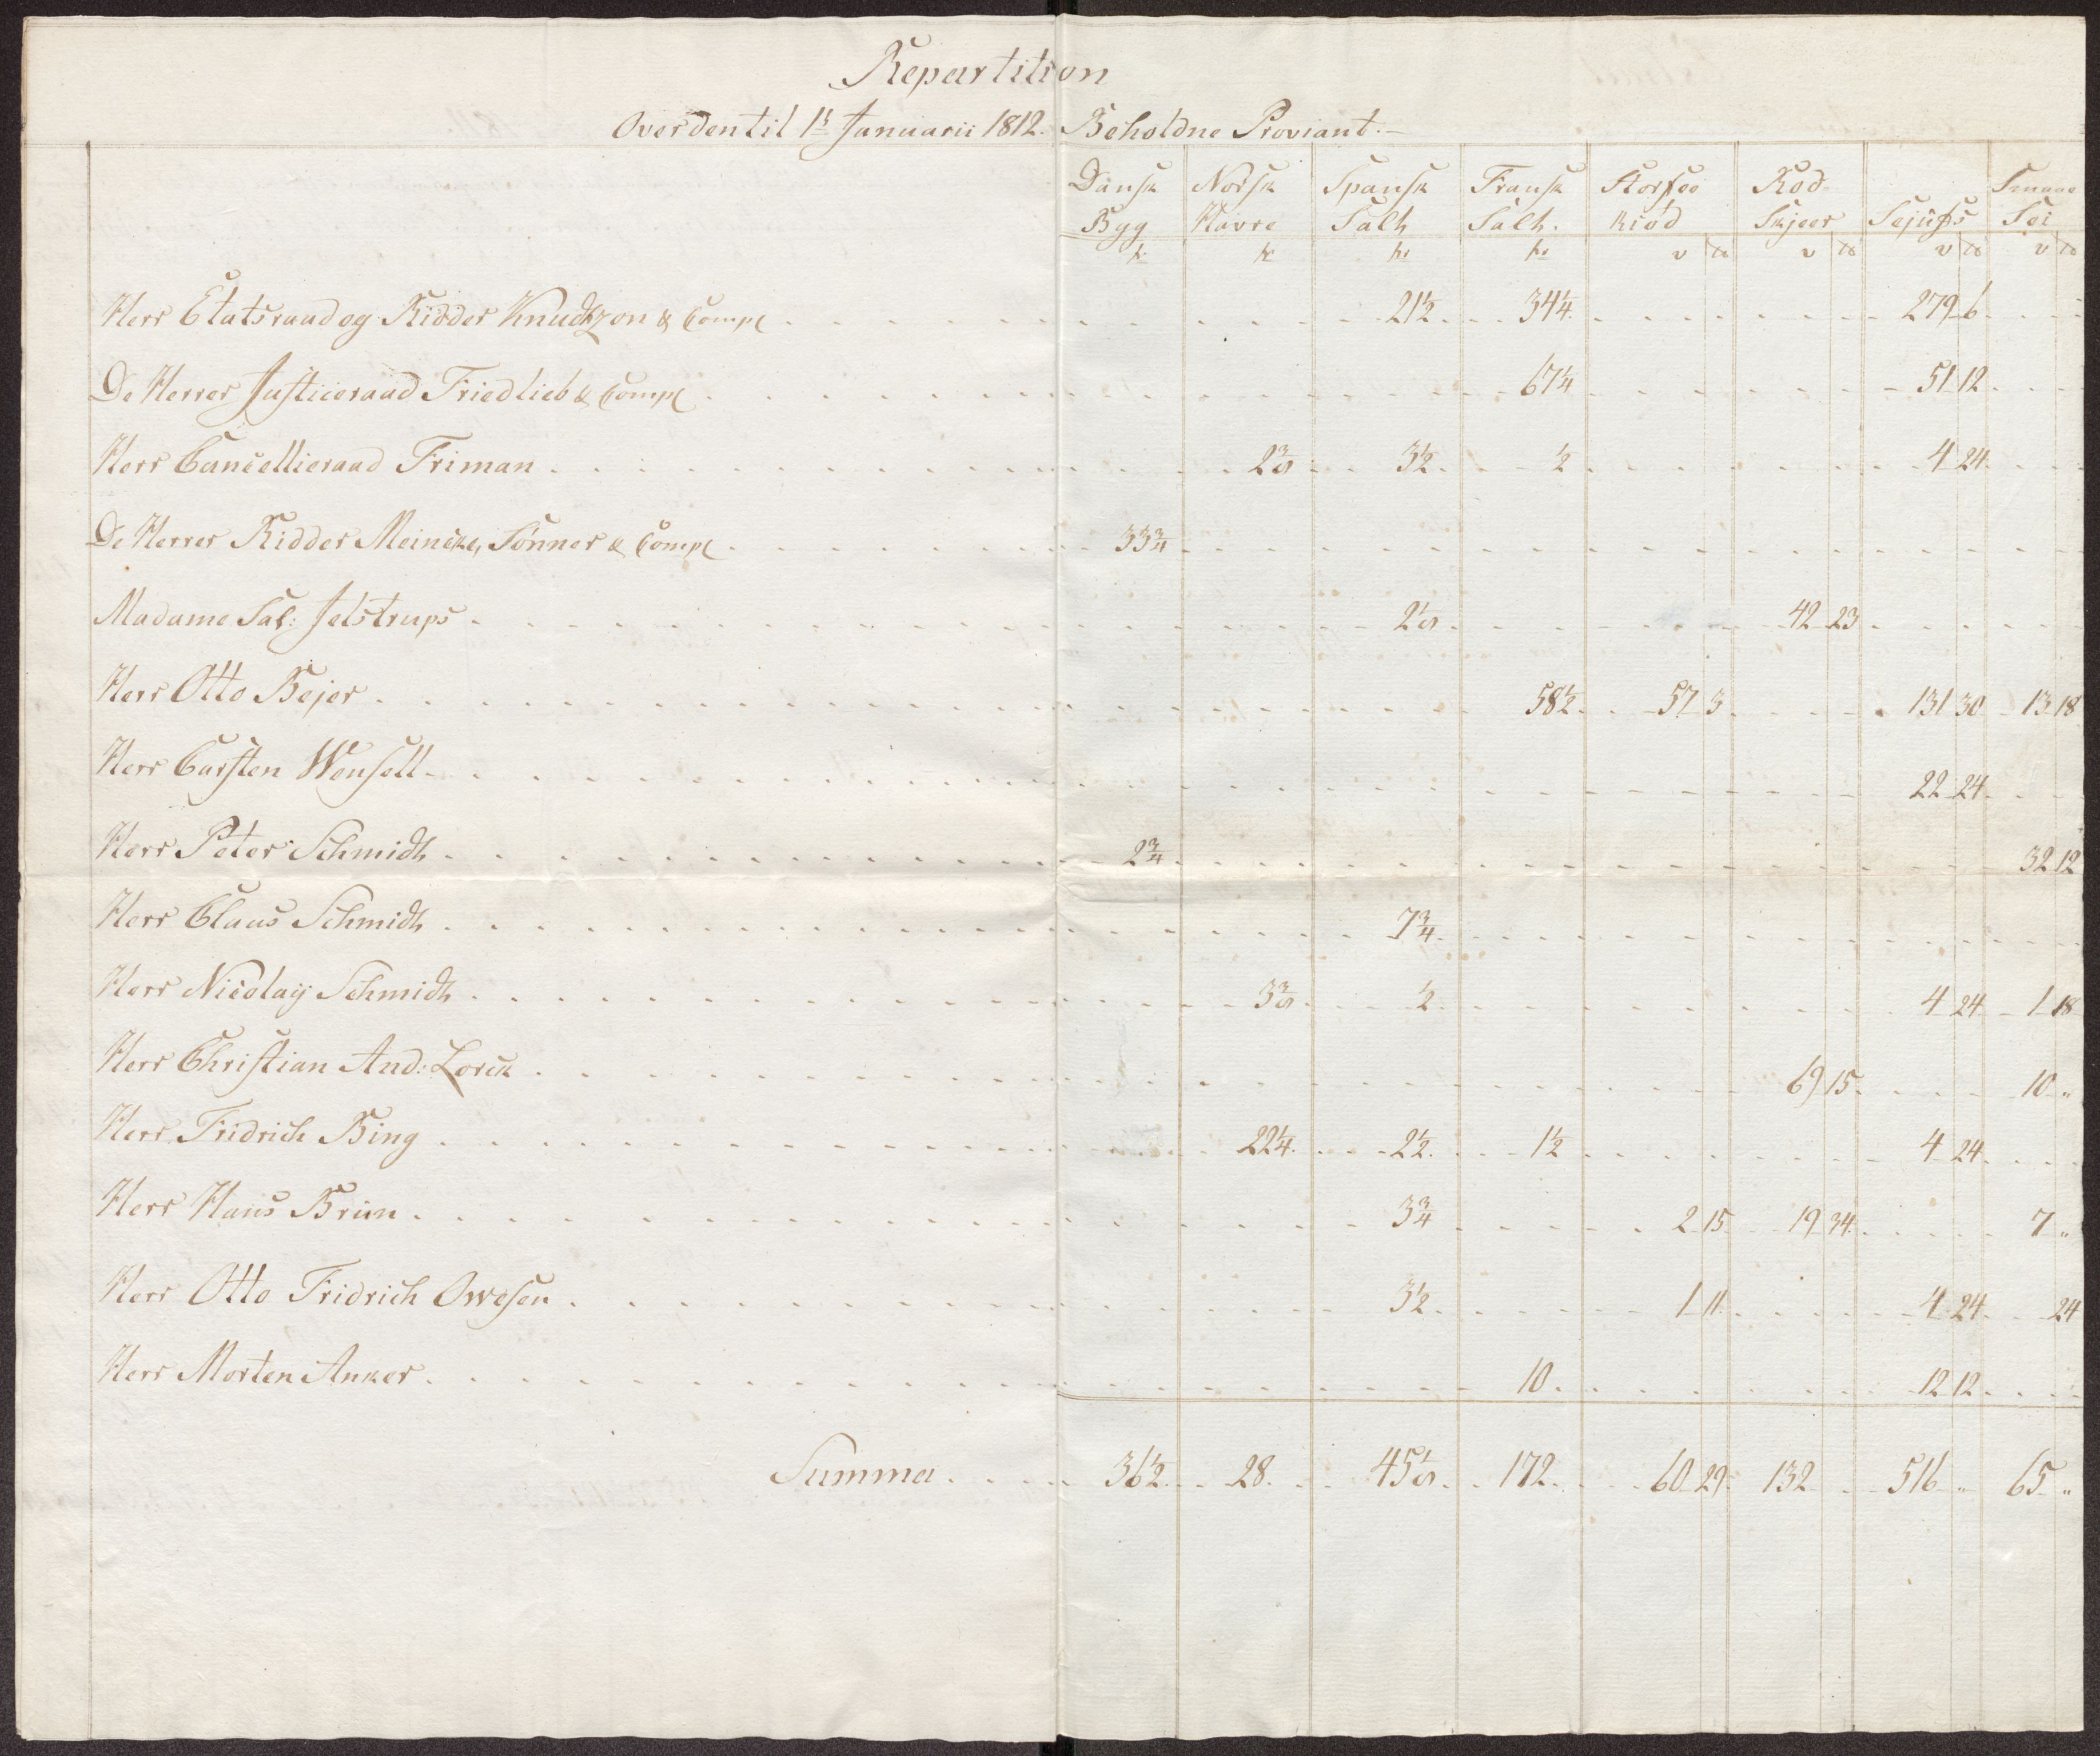 Repartition
Over den til 1ste Januarii 1812. Beholdne Proviant.
Dansk Byg Norsk Havre Spansk Salt Fransk Salt. kiød Rød Skjær Sejufs Smaae Sei
Herr Etatsraad og Ridder Knudtzon & Comp 21½ 34¼ 279 6
De Herrer Justiceraad Friedlieb & Comp 67¼ 51 12
Herr Cancellieraad Friman 2⅜ 3½ ½ 4 24
De Herrer Ridder Meincke, Sønner & Comp 33¾
Madame Sal: Jelstrups 2⅛ 42 23
Herr Otto Bejer 58½ 57 3 131 30 13 18
Herr Carsten Wensell 22 24
Herr Peter Schmidt 2¾ 32 12
Herr Claus Schmidt 7¾
Herr Nicolaÿ Schmidt 3⅜ ½ 4 24 1 18
Herr Christian And: Lorck 69 15 10 "
Herr Fridrich Bing 22¼ 2½ 1½ 4 24
Herr Hans Brün 3¾ 2 15 19 34 7 "
Herr Otto Fridrich Owesen 3½ 1 11 4 24 24
Herr Morten Anker 10 12 12
Summa 36½ 28 45⅛ 172 60 29 132 516 " 65 "